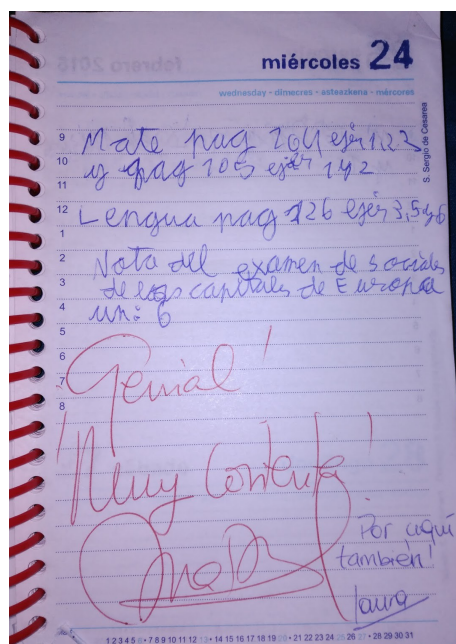 miércoles 24
wednesday - dimecres - asteazkena - mércores
S. Sergio de Cesarea
9 Mate pag 104 ejer 1 2 3
10 y pag 105 ejer 1 y 2
11
12 Lengua pag 126 ejer 3, 5 y 6
1
2 Nota del examen de sociales
3 de las capitales de Europa
4 un: 6
5
6
7 Genial!
8
¡Muy Contenta!
Por aquí
también!
Laura
1 2 3 4 5 6 • 7 8 9 10 11 12 13 • 14 15 16 17 18 19 20 • 21 22 23 24 25 26 27 • 28 29 30 31